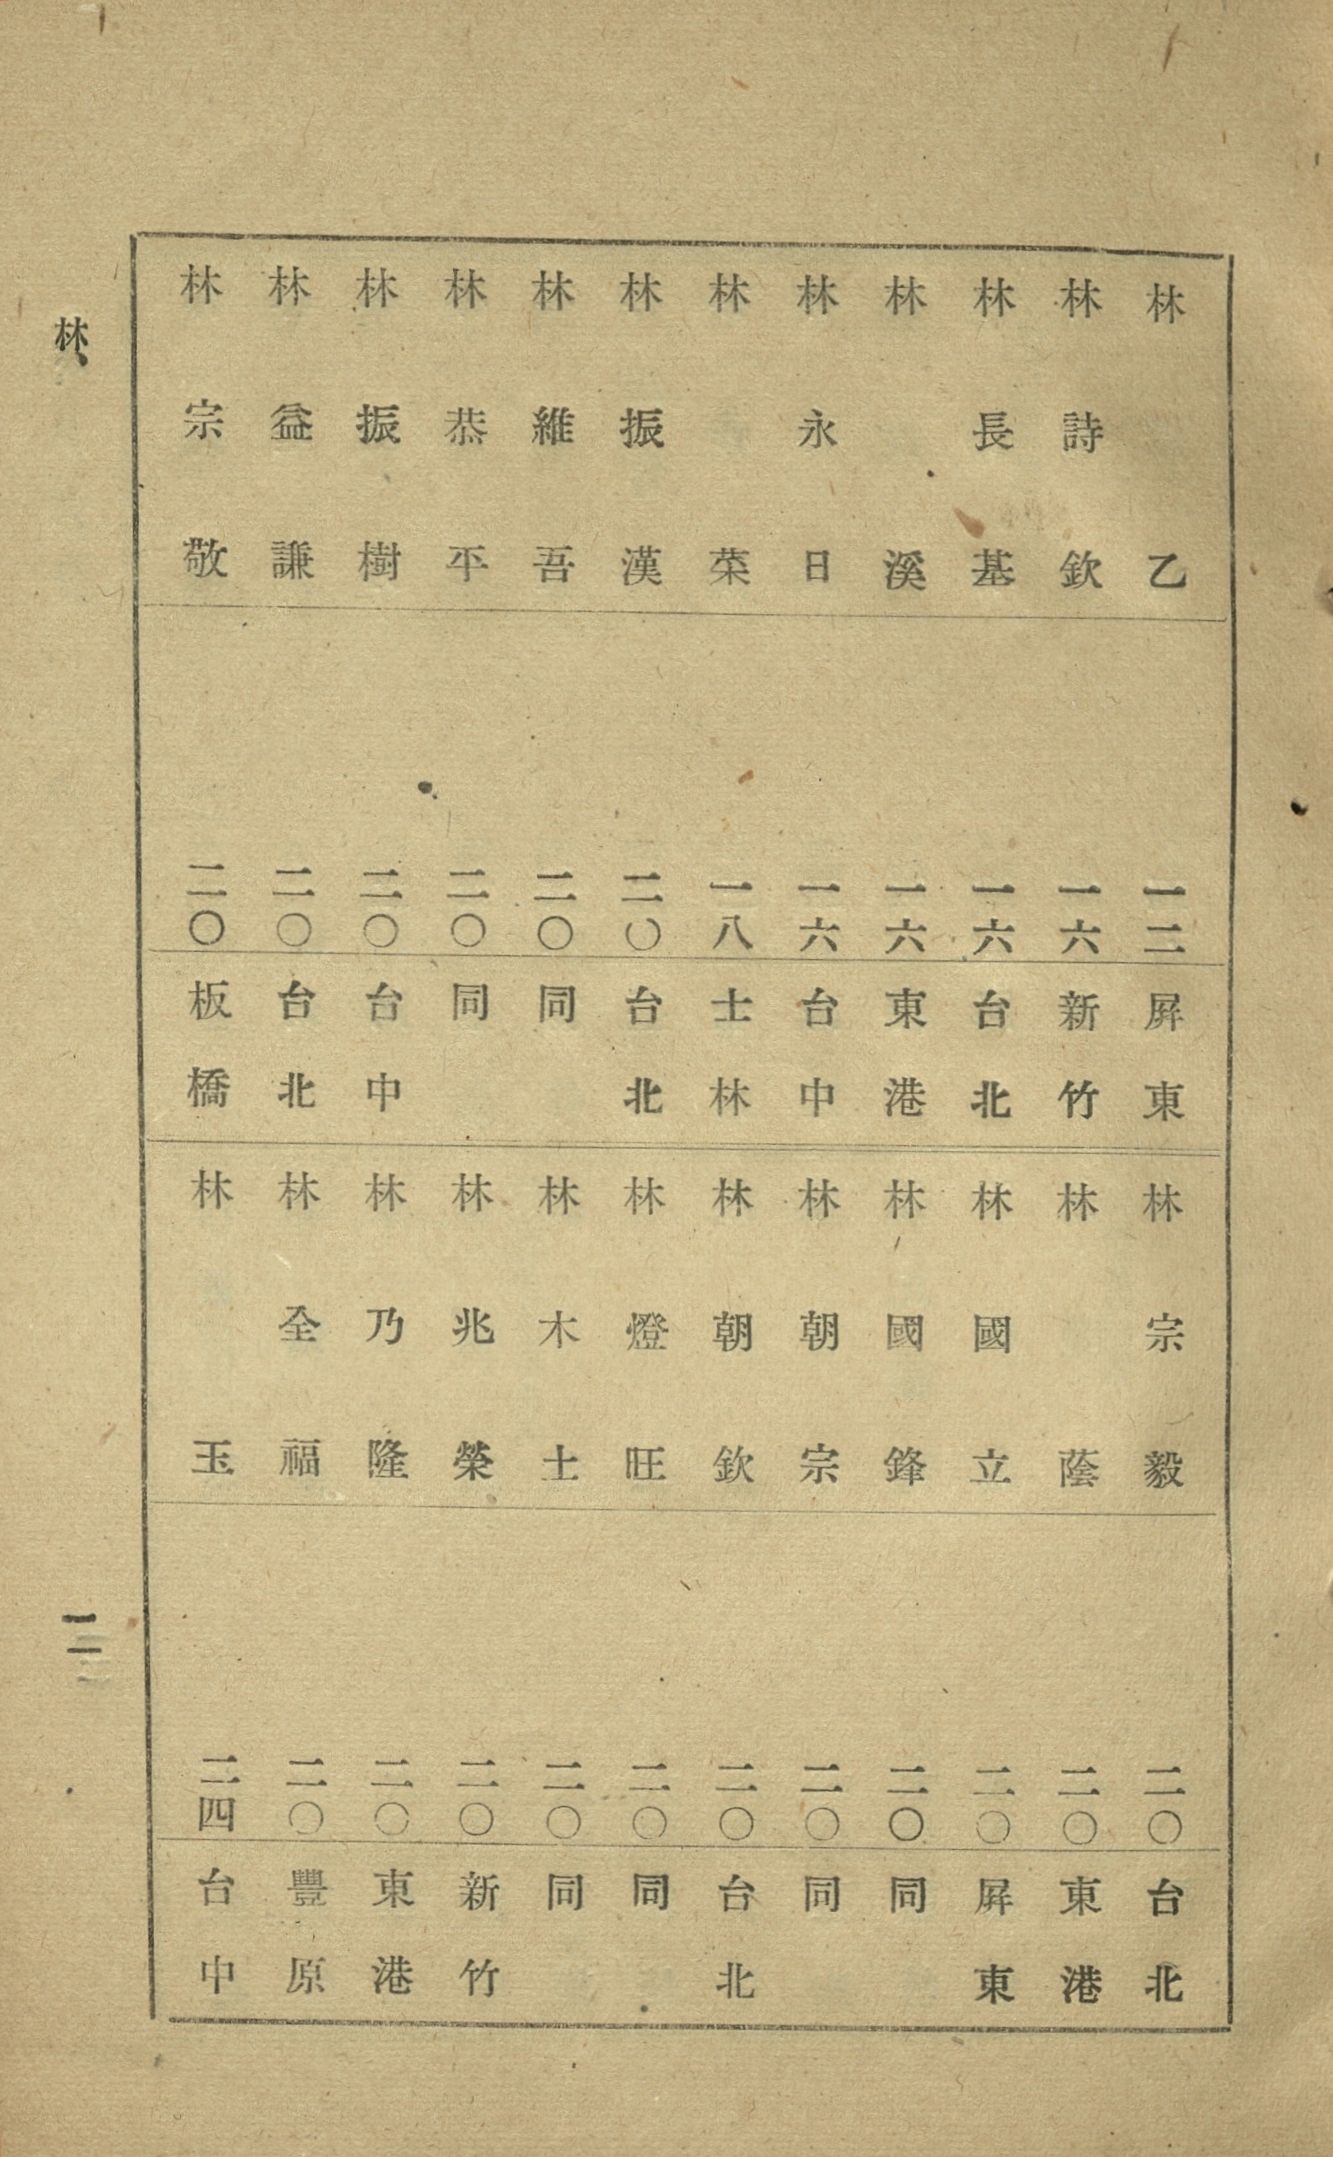 林乙 一二 屏東
林詩欽 一六 新竹
林長基 一六 台北
林溪 一六 東港
林永日 一六 台中
林荣 一八 士林
林振漢 二〇 台北
林維吾 二〇 同
林恭平 二〇 同
林振樹 二〇 台中
林益謙 二〇 台北
林宗敬 二〇 板橋
林宗毅 二〇 台北
林蔭 二〇 東港
林國立 二〇 屏東
林國鋒 二〇 同
林朝宗 二〇 同
林朝欽 二〇 台北
林燈旺 二〇 同
林木土 二〇 同
林兆榮 二〇 新竹
林乃隆 二〇 東港
林全福 二〇 豐原
林玉 二四 台中
林